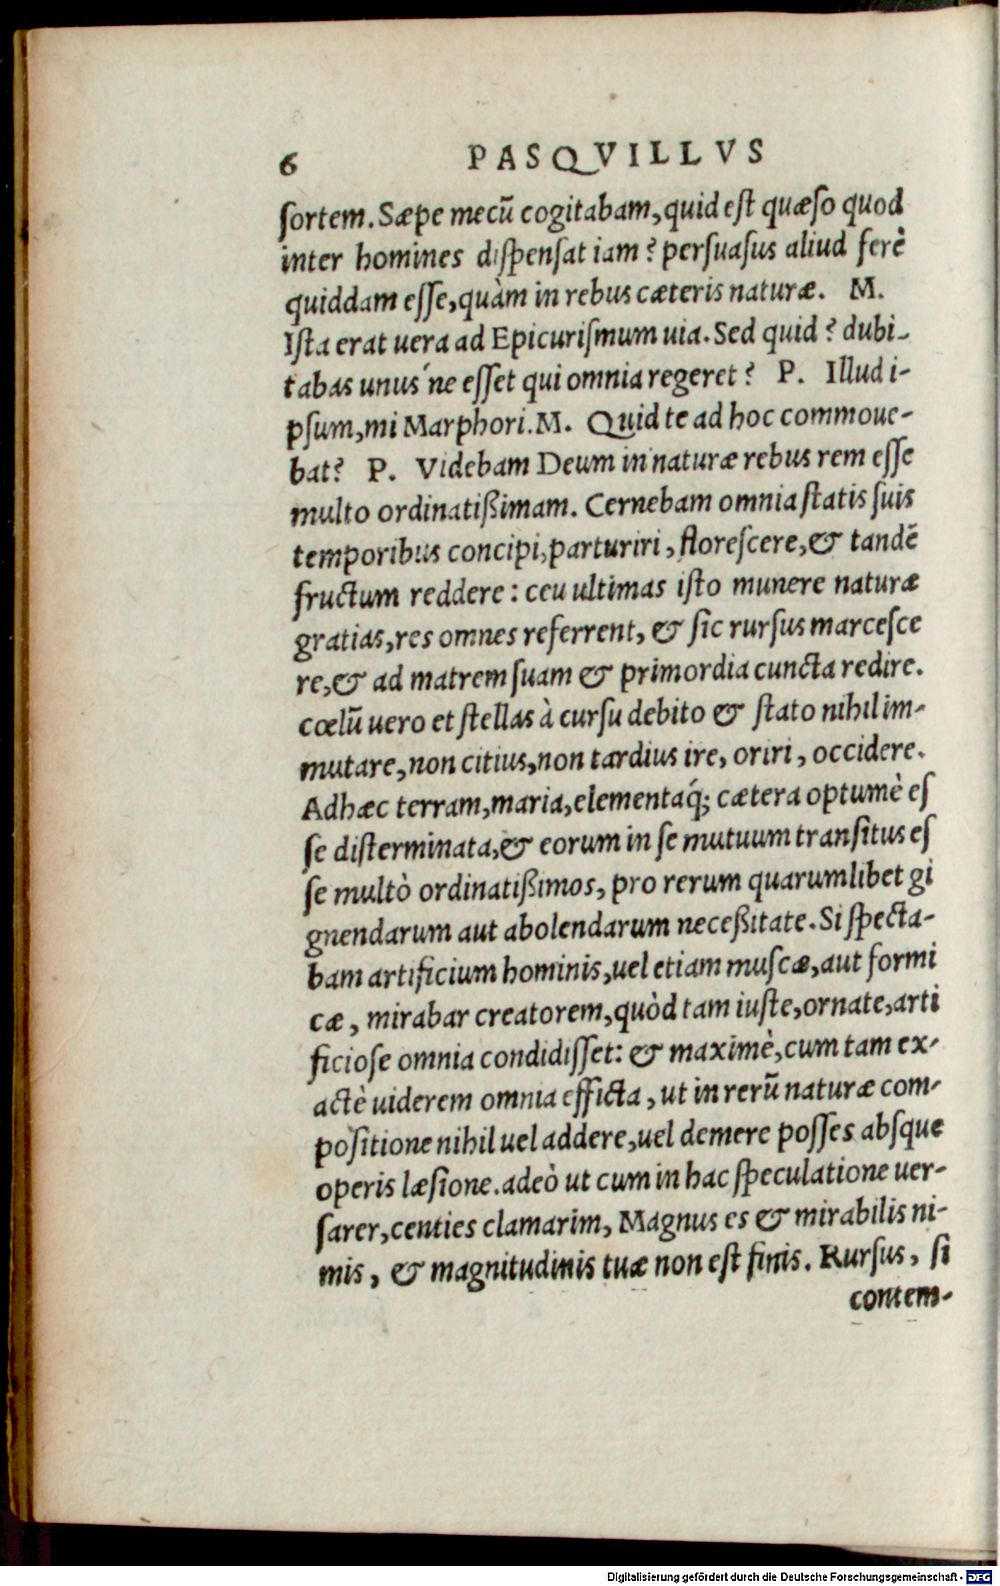 6 PASQVILLVS
ſortem. Sæpe mecū cogitabam, quid eſt quæſo quod
inter homines diſpenſat iam? perſuaſus aliud ferè
quiddam eſſe, quàm in rebus cæteris naturæ. M.
Iſta erat uera ad Epicuriſmum uia. Sed quid? dubi-
tabas unus´ne eſſet qui omnia regeret? P. Illud i-
pſum, mi Marphori. M. Quid te ad hoc commoue-
bat? P. Videbam Deum in naturæ rebus rem eſſe
multo ordinatißimam. Cernebam omnia ſtatis ſuis
temporibus concipi, parturiri, floreſcere, & tandē
fructum reddere: ceu ultimas iſto munere naturæ
gratias, res omnes referrent, & ſic rurſus marceſce
re, & ad matrem ſuam & primordia cuncta redire.
cœlū uero et ſtellas à curſu debito & ſtato nihil im-
mutare, non citius, non tardius ire, oriri, occidere.
Ad hæc terram, maria, elementaq́; cætera optumè eſ
ſe diſterminata, & eorum in ſe mutuum tranſitus eſ
ſe multò ordinatißimos, pro rerum quarumlibet gi
gnendarum aut abolendarum neceßitate. Si ſpecta-
bam artificium hominis, uel etiam muſcæ, aut formi
cæ, mirabar creatorem, quòd tam iuſte, ornate, arti
ficioſe omnia condidiſſet: & maximè, cum tam ex-
actè uiderem omnia efficta, ut in rerū naturæ com-
poſitione nihil uel addere, uel demere poſſes abſque
operis læſione. adeò ut cum in hac ſpeculatione uer-
ſarer, centies clamarim, Magnus es & mirabilis ni-
mis, & magnitudinis tuæ non eſt finis. Rurſus, ſi
contem-
Digitalisierung gefördert durch die Deutsche Forschungsgemeinschaft - DFG